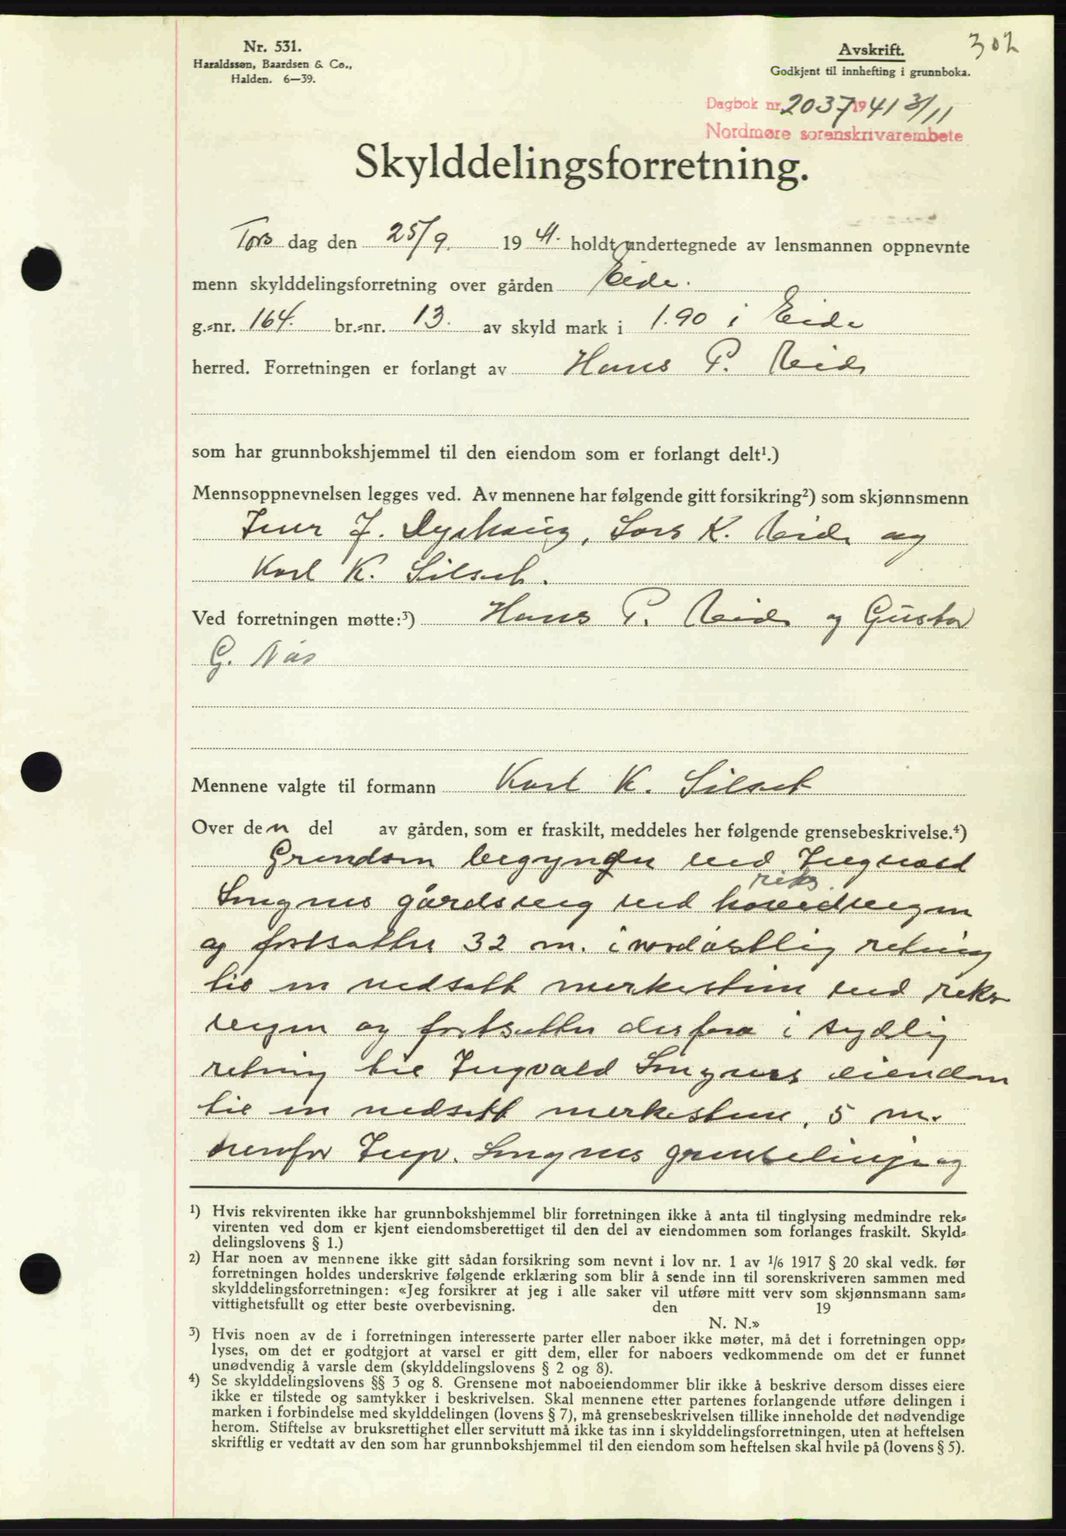 Nr. 531.
Haraldssøn, Baardsen & Co.,
Halden. 6—39.
Avskrift.
Godkjent til innhefting i grunnboka.
302
Dagbok nr. 2037 1941 3/11
Nordmøre sorenskrivarembete
Skylddelingsforretning.
Tors dag den 25/9. 19 41. holdt undertegnede av lensmannen oppnevnte
menn skylddelingsforretning over gården Eide.
g.-nr. 164. br.-nr. 13. av skyld mark i 1.90 i Eide
herred. Forretningen er forlangt av Hans P. Eide
som har grunnbokshjemmel til den eiendom som er forlangt delt¹.)
Mennsoppnevnelsen legges ved. Av mennene har følgende gitt forsikring²) som skjønnsmenn
Iver J. Lars K. Eide og
Karl K. Silset.
Ved forretningen møtte:³) Hans P. Eide og Gustav
G. Nås
Mennene valgte til formann Karl K. Silset
Over den del av gården, som er fraskilt, meddeles her følgende grensebeskrivelse.⁴)
Grendsen begynder ved Ingvald
Lyngnes gårdsveg ved riks hovedvegen
og fortsetter 32 m. i nordøstlig retning
til en nedsatt merkestein ved riks-
vegen og fortsetter derfra i sydlig
retning til Ingvald Lyngnes eiendom
til en nedsatt merkesten, 5 m.
Ingv. Lyngnes grenselinje og
¹) Hvis rekvirenten ikke har grunnbokshjemmel blir forretningen ikke å anta til tinglysing medmindre rek-
virenten ved dom er kjent eiendomsberettiget til den del av eiendommen som forlanges fraskilt. Skyld-
delingslovens § 1.)
²) Har noen av mennene ikke gitt sådan forsikring som nevnt i lov nr. 1 av 1/6 1917 § 20 skal vedk. før
forretningen holdes underskrive følgende erklæring som blir å sende inn til sorenskriveren sammen med
skylddelingsforretningen: «Jeg forsikrer at jeg i alle saker vil utføre mitt verv som skjønnsmann sam-
vittighetsfullt og etter beste overbevisning. den 19
N. N.»
³) Hvis noen av de i forretningen interesserte parter eller naboer ikke møter, må det i forretningen opp-
lyses, om det er godtgjort at varsel er gitt dem, eller for naboers vedkommende om det er funnet
unødvendig å varsle dem (skylddelingslovens § 2 og 8).
⁴) Se skylddelingslovens §§ 3 og 8. Grensene mot naboeiendommer blir ikke å beskrive dersom disses eiere
ikke er tilstede og samtykker i beskrivelsen. Skal mennene etter partenes forlangende utføre delingen i
marken i forbindelse med skylddelingen (lovens § 7), må grensebeskrivelsen tillike inneholde det nødvendige
herom. Stiftelse av bruksrettighet eller servitutt må ikke tas inn i skylddelingsforretningen, uten at heftelsen
skriftlig er vedtatt av den som har grunnbokshjemmel til den eiendom som heftelsen skal hvile på (lovens § 5).